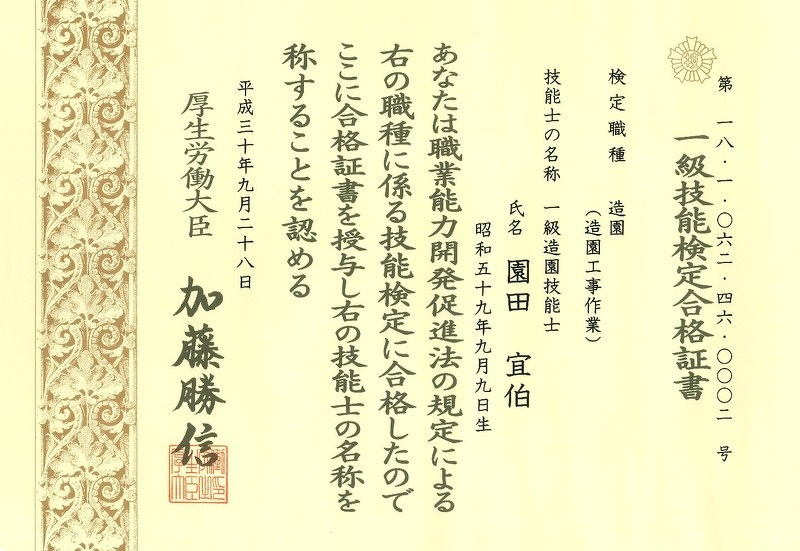 第一八・一・〇六二・四六・〇〇〇二号
一級技能検定合格証書
検定職種 造園
（造園工事作業）
技能士の名称 一級造園技能士
氏名 園田 宜伯
昭和五十九年九月九日生
あなたは職業能力開発促進法の規定による
右の職種に係る技能検定に合格したので
ここに合格証書を授与し右の技能士の名称を
称することを認める
平成三十年九月二十八日
厚生労働大臣 加藤勝信